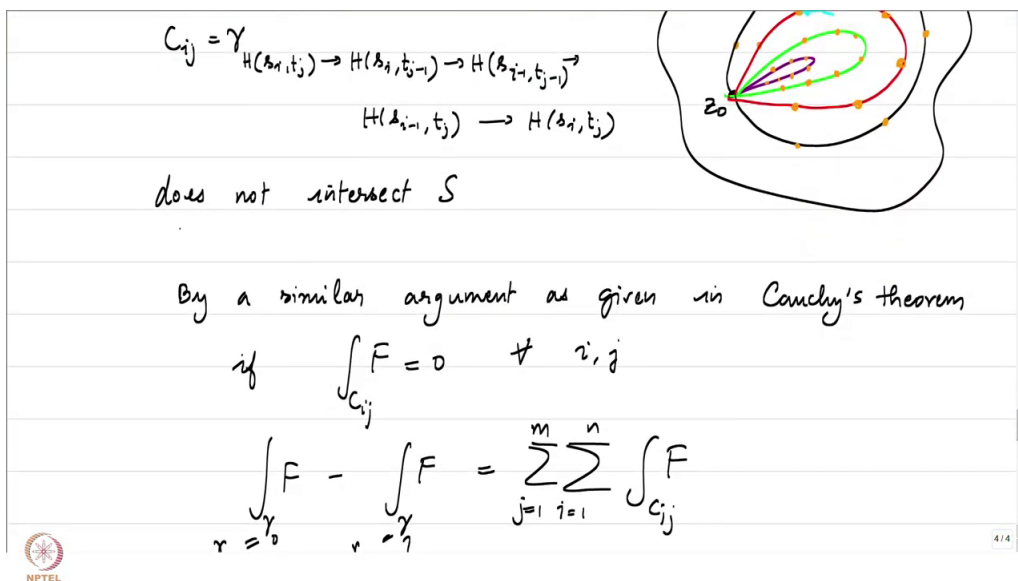 C_{ij} = γ_{H(s_i, t_j) → H(s_i, t_{j-1}) → H(s_{i-1}, t_{j-1}) →
H(s_{i-1}, t_j) → H(s_i, t_j)}
z_0
does not intersect S
By a similar argument as given in Cauchy's theorem
if ∫_{C_{ij}} F = 0 ∀ i, j
∫_{γ_0} F - ∫_{γ_1} F = ∑_{j=1}^{m} ∑_{i=1}^{n} ∫_{C_{ij}} F
= 0
4/4
NPTEL